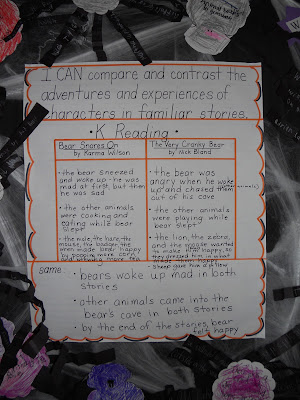 I CAN compare and contrast the
adventures and experiences of
characters in familiar stories.
• K Reading •
Bear Snores On
by Karma Wilson
• the bear sneezed
and woke up - he was
mad at first, but then
he was sad
• the other animals
were cooking and
eating while bear
slept
• the mole, the hare, the
mouse, the badger, the
wren made bear happy
by popping more corn
The Very Cranky Bear
by Nick Bland
• the bear was
angry when he woke
up and chased them
out of his cave
• the other animals
were playing while
bear slept
• the lion, the zebra,
and the moose wanted
to make him happy, so
they dressed him in what
made them happy
- sheep gave him a pillow
same:
• bears woke up mad in both
stories
• other animals came into the
bear's cave in both stories
• by the end of the stories, bear
felt happy